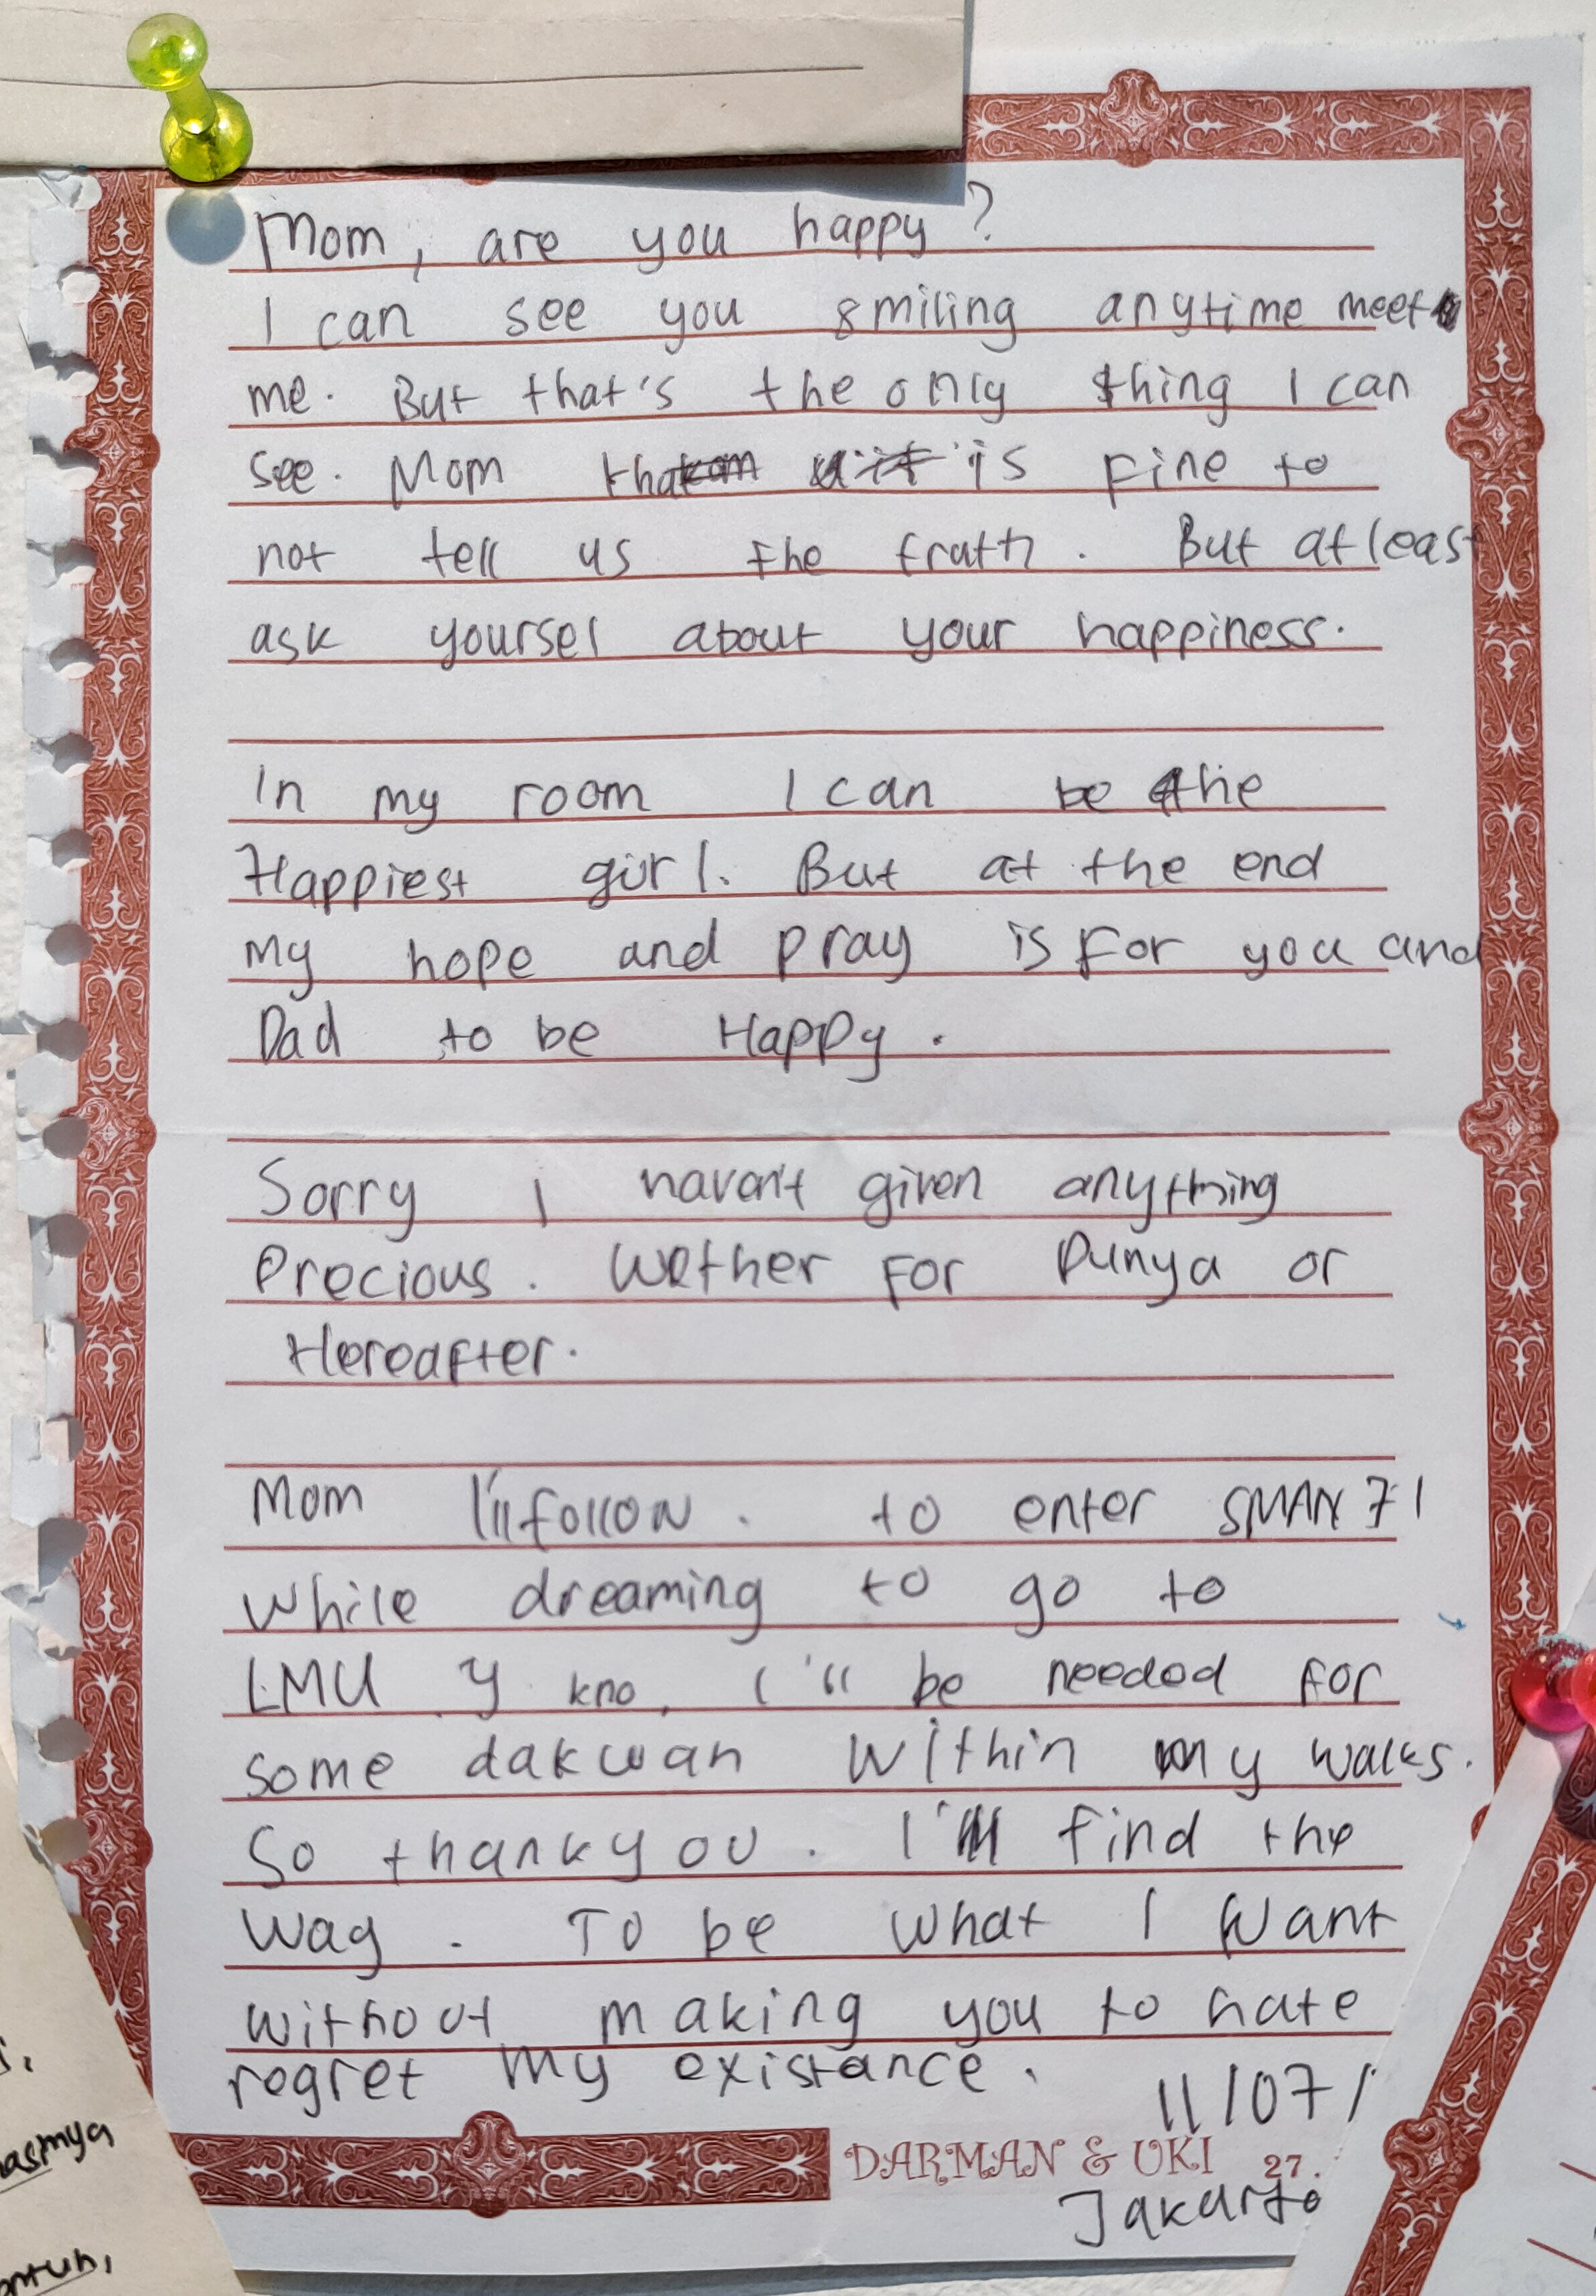 Mom, are you happy?
I can see you smiling anytime meet
me. But that's the only thing I can
see. Mom is fine to
not tell us the trath. But at least
ask yoursel about your happiness.
In my room I can be the
Happiest girl. But at the end
my hope and pray is for you and
Dad to be Happy.
Sorry I haven't given anything
Precious. Wether For Dunya or
Hereafter.
Mom I'll follow. to enter SMAN 71
while dreaming to go to
LMU. Y kno, I'll be needed for
some dakwah within my walks.
So thankyou. I'll find the
way. To be what I want
without making you to hate
regret my existance.
11/07/
DARMAN & UKI 27.
Jakarta
asmya